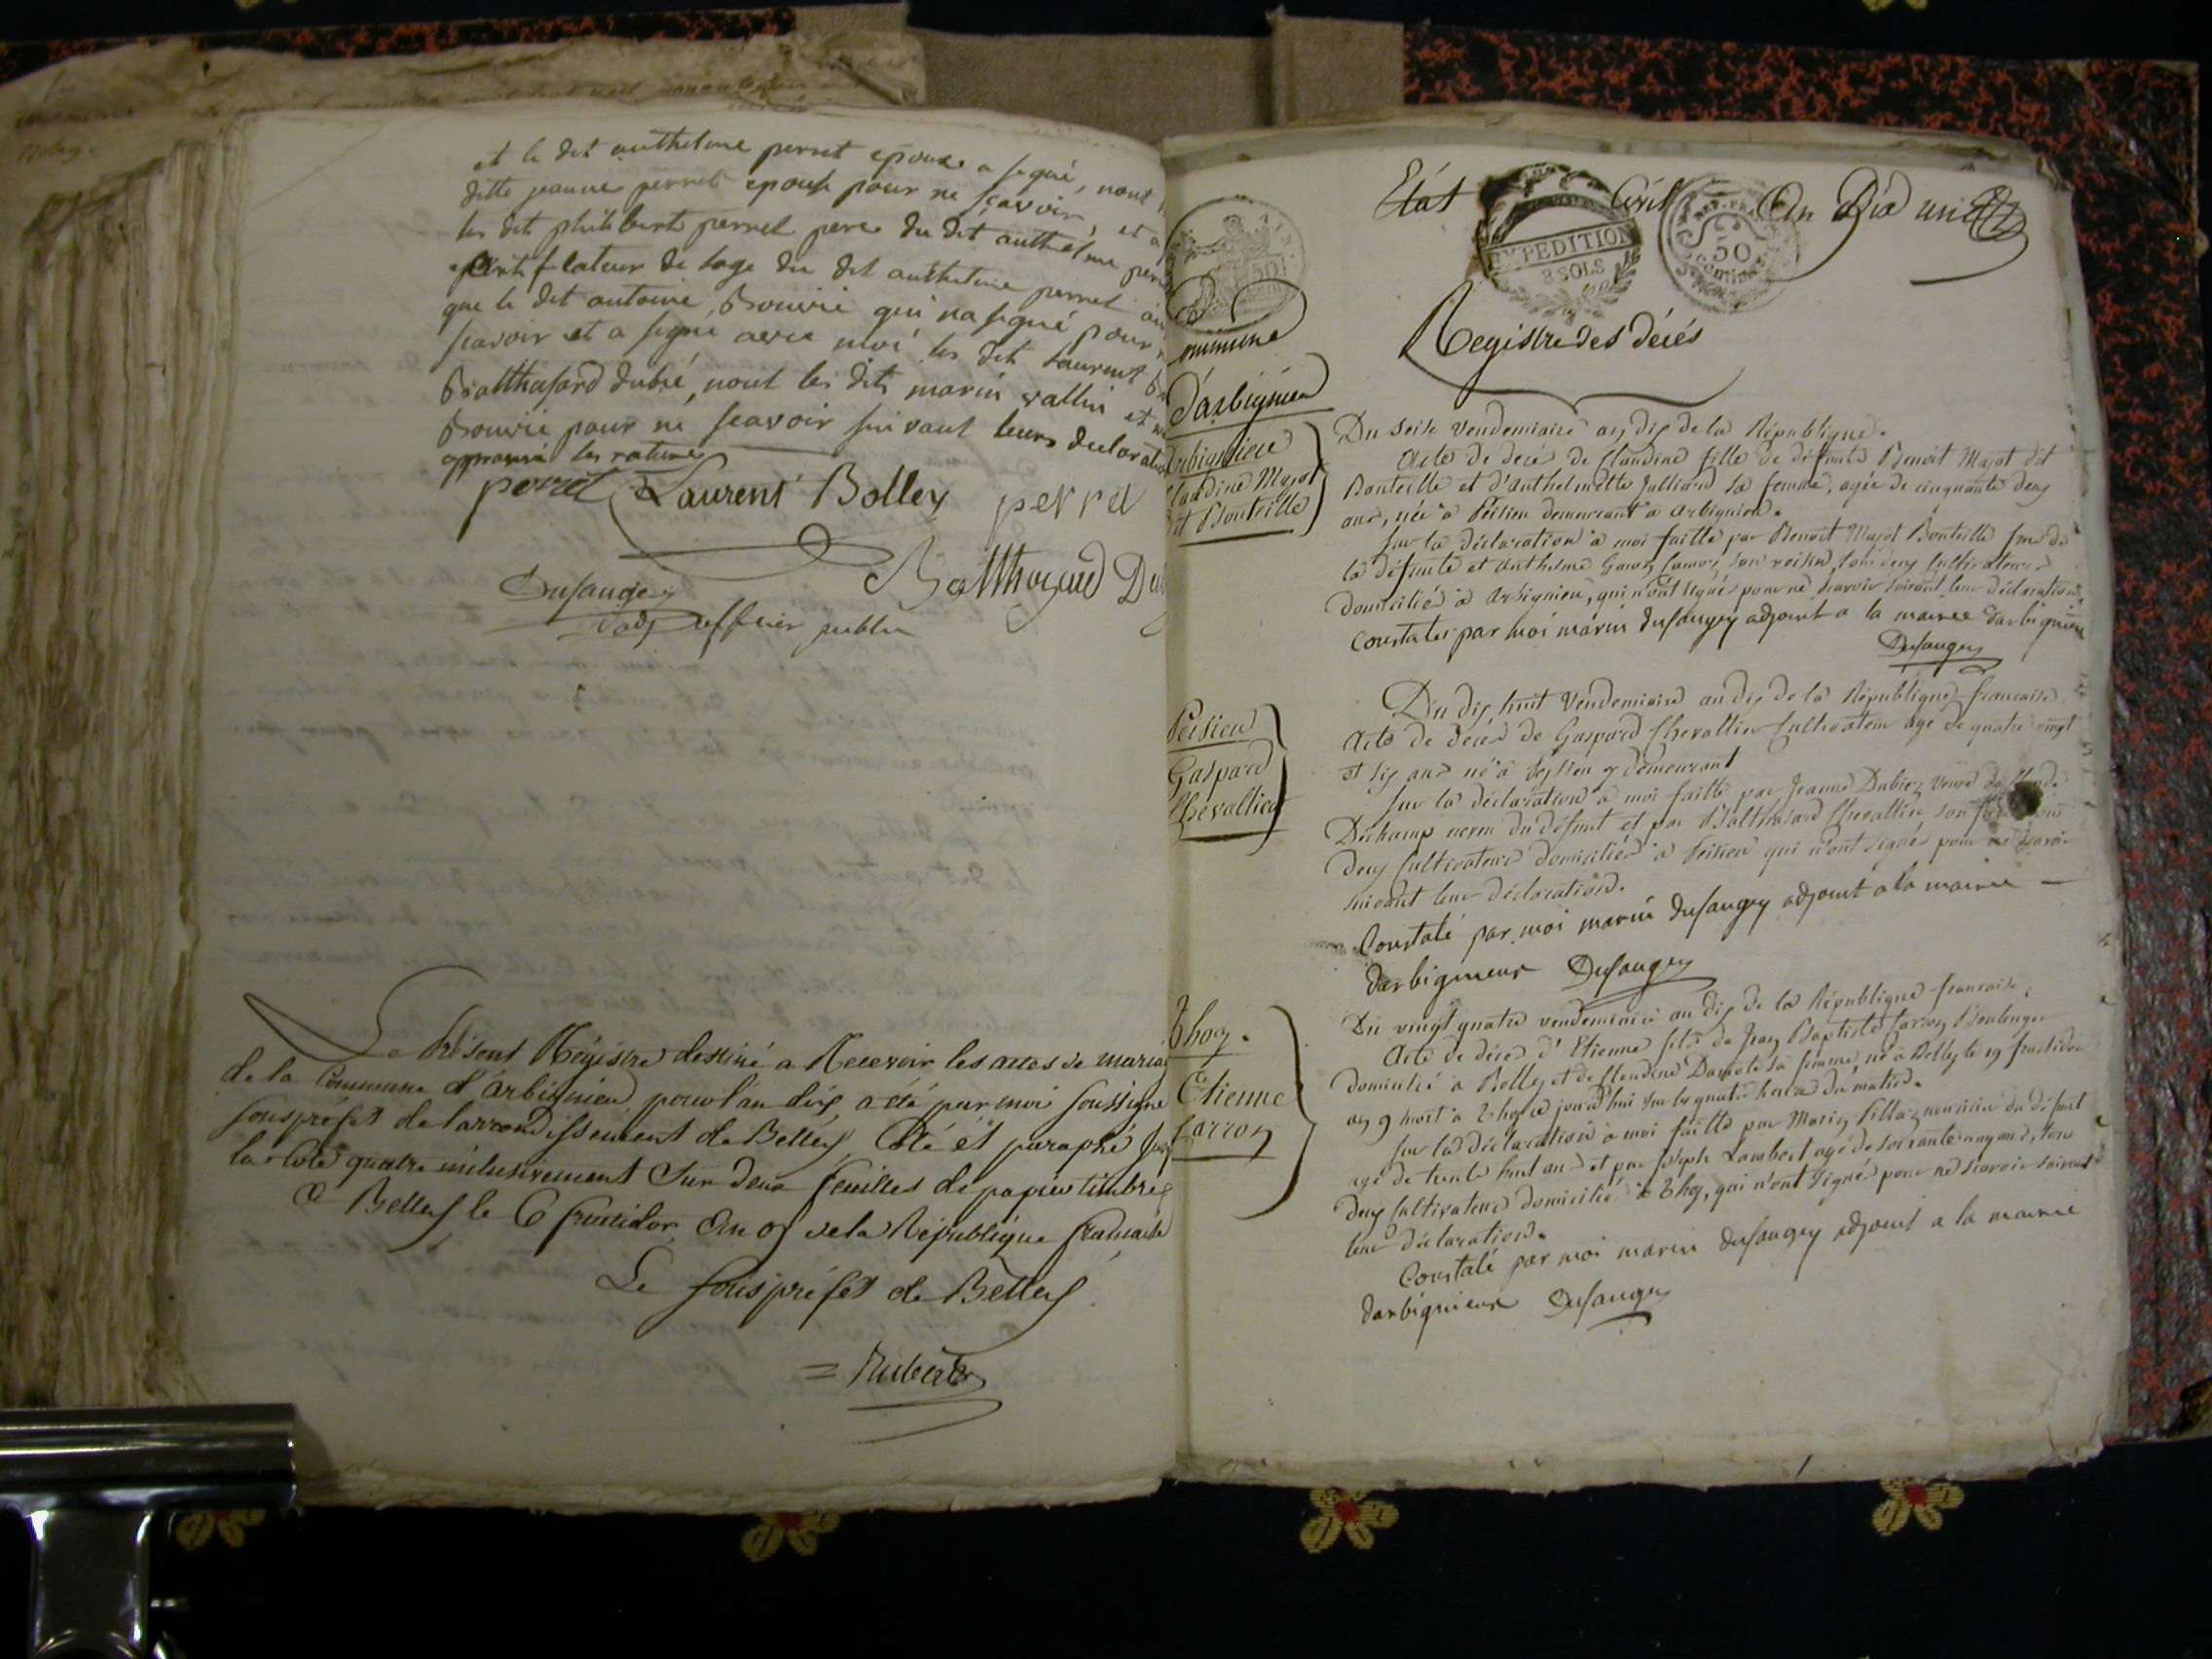 et le dit anthelme perret epoux a signé, nont
ditte jeanne perret epouse pour ne scavoir, et a
les dit philibert perret pere du dit anthelme
de lage du dit anthelme perret
que le dit antoine Bouvié qui na signé pour
scavoir et a signé avec moi les dit Laurent
Balthasard dubié, nont les dits marin vallin et
Bouvié pour ne scavoir suivant leurs declaration
approuvé les ratures
perret Laurent Bolley perret
Balthazard
Dufaugey
adj officier public
Le Présent Régistre destiné a Recevoir les actes de mariag
de la Commune d'arbignieu pour l'an dix, a été par moi soussigné
sousprefet de larrondissement de Belley, Coté et paraphé
la Cote quatre inclusivement Sur deux feuilles de papier timbré
a Belley, le 6 fructidor, an 9 de la République francaise
Le sousprefet de Belley.
Etat Civil An Dix
EXPEDITION
8 SOLS
REP. FRA
50
Centimes
50
ommune
D'arbignieu
Registre des décés
rbignieu
laudine Majot
it Bouteille
Du seise vendemiaire an dix de la République.
Acte de decès de Claudine fille de défunts Benoit Majot dit
Bouteille et d'Anthelmette Julliard sa femme, agée de cinquante deux
ans, née à Peisieu demeurant à arbignieu.
sur la déclaration à moi faitte par Benoit Majot Bouteille
la défunte et Anthelme son voisin, tous deux cultivateurs
domiciliés à Arbignieu, qui n'ont signé pour ne scavoir suivant leur déclaration.
Constater par moi marin dufaugey adjoint a la mairee darbignieu
Dufaugey
Peisieu
Gaspard
Chevallier
Du dix huit Vendemiaire an dix de la République francaise
Acte de decès de Gaspard Chevallier Cultivateur agé de quatre vingt
et six ans né à Peysieu y demeurant
sur la déclaration à moi faitte par Jeanne Dubiez veuve de
Dechamp du défunt et par Balthasard Chevallier son
deux Cultivateurs domiciliés à Peisieu qui n'ont signé pour ne scavoir
suivant leur déclaration.
Constaté par moi marin dufaugey adjoint a la mairie
darbignieux Dufaugey
Thoy.
Etienne
Carron
Du vingt quatre vendemiaire an dix de la République francaise.
Acte de décès d'Etienne fils de Jean Baptiste Carron Boulenger
domicilié à Belley et de Claudine sa femme, né à Belley le 19 fructidor
an 9 mort à Thoy ce jourd'hui sur les quatre heures du matin.
sur la déclaration à moi faitte par Marin du défunt
agé de trente huit ans et par Joseph Lambert agé de soixante cinq ans, tous
deux Cultivateurs domicilié à Thoy, qui n'ont signé pour ne scavoir suivant
leur déclaration.
Constaté par moi marin dufaugey adjoint a la mairie
darbignieux Dufaugey